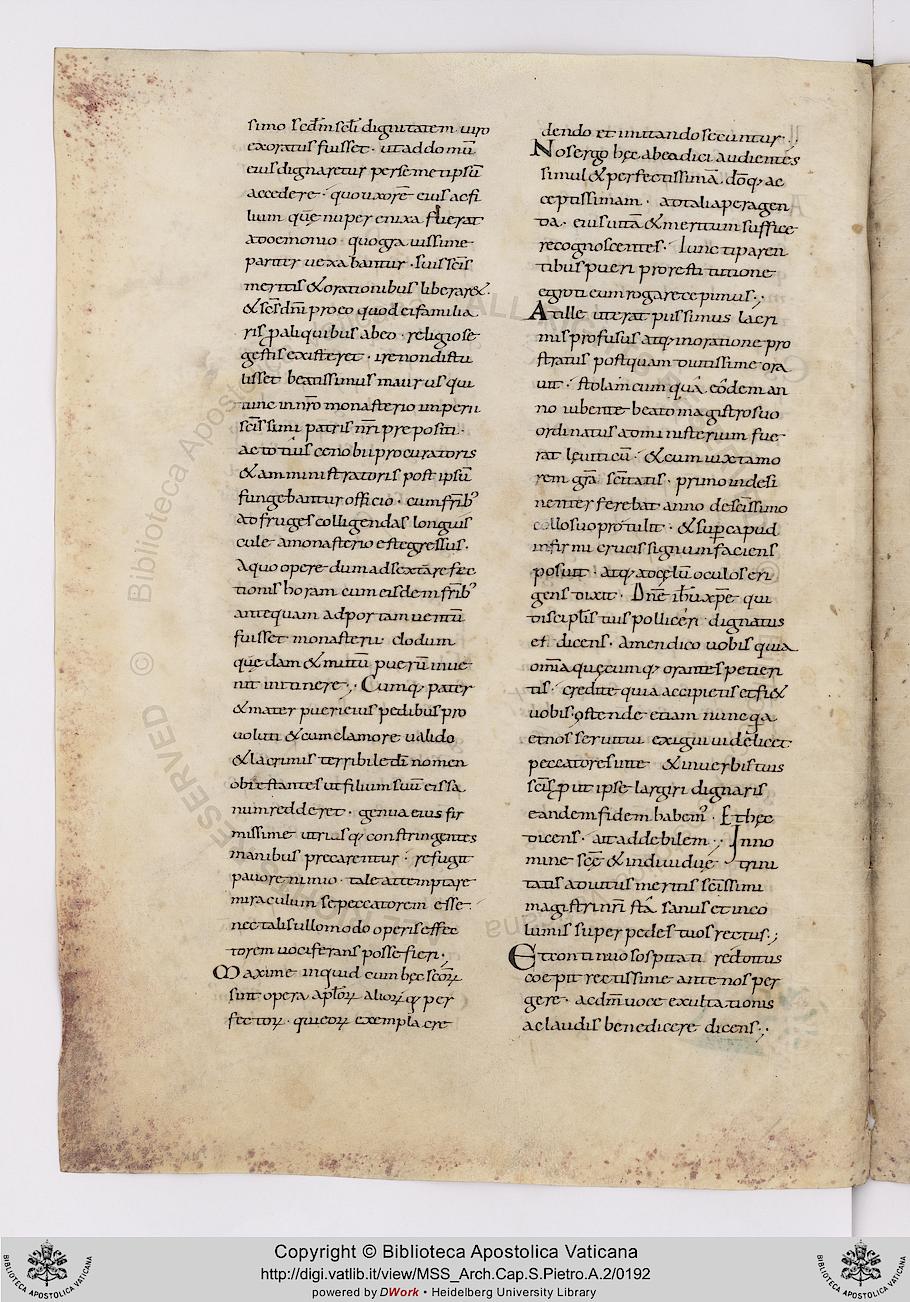 simo sedm̄ scl̄i dignitatem uiro
exoratus fuisset · ut ad domū
eius dignaretur per semetipsū
accedere · quo uxorē eius ac fi
lium quē nuper enixa fuerat
a doemonio · quo gra uissime
pariter uexabantur · suis sc̄is
meritis & orationibus liberar&·
& sēs dn̄i pro eo quod ei familia
ris p̄ aliquibus abeo · religiose
gestis existeret · ire non distu
lisset beatissimus maurus qui
tunc in nr̄o monasterio unperii
sc̄issimi patris nr̄i prepositi ·
ac totius cenobii procuratoris
& amministratoris post ipsū
fungebantur officio · cum frīb;
ad fruges colligendas longius
cule a monasterio est egressus ·
A quo opere dum ad sextā refec
tionis horam cum eisdem frīb;
antequam ad portam uentū
fuisset monasterii clodum
quędam & mutū puerū inue
nit in tinere ·, Cumq; pater
& mater pueri eius pedibus pro
uoluti & cum clamore ualido
& lacrimis terribile dī nomen
obtestantes ut filium suū eis sa
num redderet · genua eius fir
missime utrisq; constringentes
manibus precarentur · refugit
pauore nimio · tale attemptare
miraculum se peccatorem esse ·
nec talis ullomodo operis effec
torem uociferans posse fieri ·
Maxime inquid cum hęc sc̄orꝝ
sint opera aplōrꝝ aliorꝝ q; per
fectorꝝ · qui eorꝝ exempla cre
dendo et imitando secuntur ·,
Nos ergo hęc abea dici audientes
simul & perfectissimā · dōq; ac
ceptissimam · ad talia peragen
da · eius uitā & meritum suffice
recognoscentes · Iunc ti paren
tibus pueri pro resti tutione
egroti eum rogare cepimus ·,
At ille ut erat piissimus lacri
mis profusus atq; in oratione pro
stratus postquam diutissime ora
uit · stolam cum qua eōdem an
no iubente beato magistro suo
ordinatus ad ministerium fue
rat leuiticū · & cum iuxta mo
rem grā scītatis · pruno indesi
nenter ferebat anno de scīssimo
collo suo protulit · & sup̄ capud
infirmi crucis signum faciens
posuit · atq; ad cęlū oculos eri
gens dixit · Dn̄e ih̄u xp̄e qui
disciplīs tuis polliceri dignatus
es dicens · Amen dico uobis quia
om̄ia quęcumq; orantes petieri
tis · credite quia accipietis et fi&
uobis · ostende etiam nunc qa
et nos serui tui exigui uidelicet
peccatores in te & in uerbis tuis
sc̄is p̄ ut ipse largiri dignaris
eandem fidem habem; · Et hęc
dicens · ait ad debilem ·, In no
mine scē & indiuiduę trini
tatis adiutus meritis sc̄issimi
magistri nr̄i sta sanus et inco
lumis super pedes tuos rectus ·,
Et continuo sospitati redditus
coepit rectissime ante nos per
gere · ac dm̄ uoce exultationis
ac laudis benedicere dicens ·,
Copyright © Biblioteca Apostolica Vaticana
http://digi.vatlib.it/view/MSS_Arch.Cap.S.Pietro.A.2/0192
powered by DWork • Heidelberg University Library